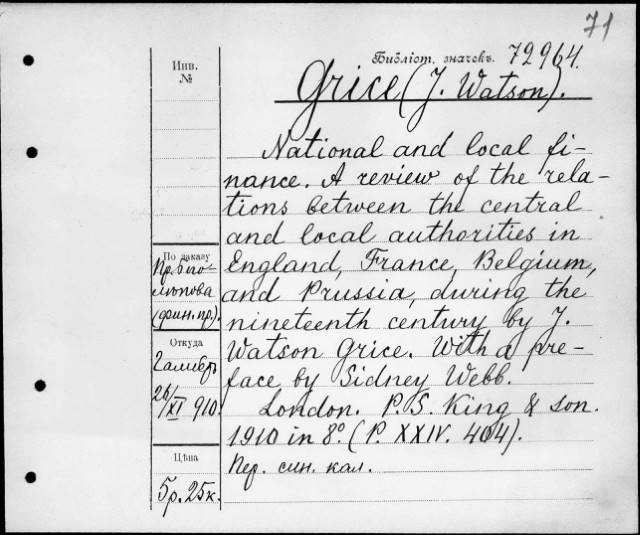 71
Инв. №
Библіот. значекъ 72964.
Grice (J. Watson).
National and local fi-
nance. A review of the rela-
tions between the central
and local authorities in
England, France, Belgium,
and Prussia, during the
nineteenth century by J.
Watson Grice. With a pre-
face by Sidney Webb.
London. P. S. King & son.
1910 in 8º. (P. XXIV. 404).
Пер. син. кал.
По заказу
Пр. Бого-
лѣпова
(фин. пр.).
Откуда
26/XI 910.
Цѣна
5р. 25к.